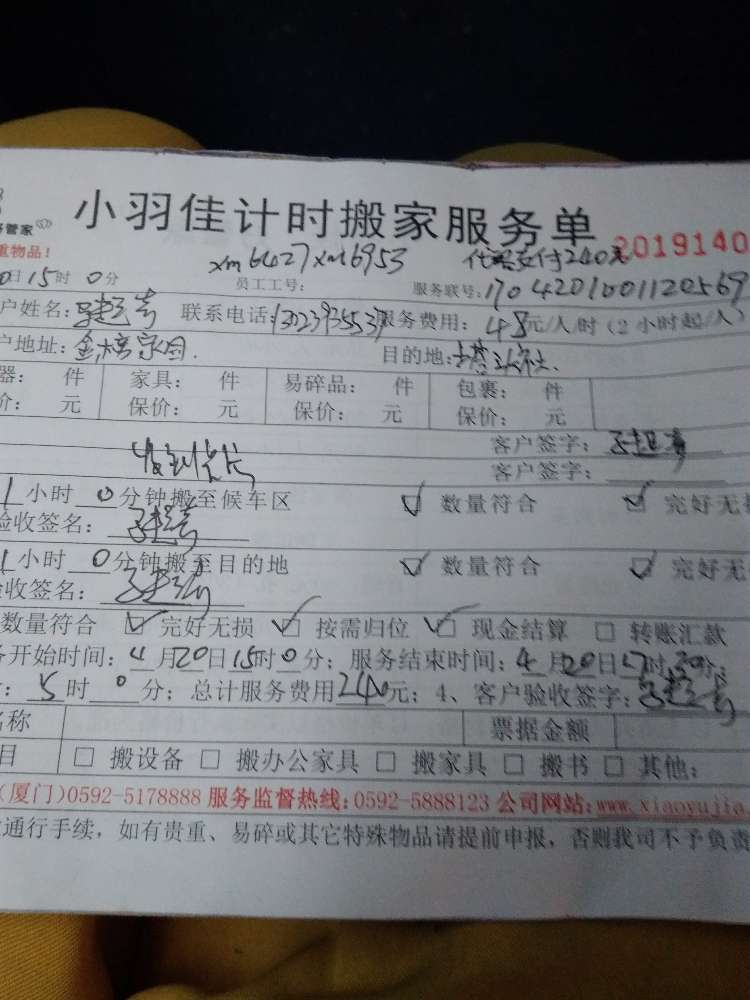 管家
小羽佳计时搬家服务单
重物品！
2019140
xm6427 xm6953
代客支付240元
日15时0分
员工工号：
服务联号：1704201001120569
户姓名：
联系电话：
服务费用：48元/人/时（2小时起/人）
户地址：金榜家园
目的地：
器： 件 家具： 件 易碎品： 件 包裹： 件
价： 元 保价： 元 保价： 元 保价： 元
客户签字：
收到优片
客户签字：
1小时0分钟搬至候车区 ☑ 数量符合 ☑ 完好无损
验收签名：
1小时0分钟搬至目的地 ☑ 数量符合 ☑ 完好无
验收签名：
数量符合 ☑ 完好无损 ☑ 按需归位 ☑ 现金结算 □ 转账汇款
务开始时间：4月20日15时0分；服务结束时间：4月20日17时30分；
：5时0分；总计服务费用240元；4、客户验收签字：
名称 票据金额
目 □ 搬设备 □ 搬办公家具 □ 搬家具 □ 搬书 □ 其他：
（厦门）0592-5178888 服务监督热线：0592-5888123 公司网站：www.xiaoyujia
通行手续，如有贵重、易碎或其它特殊物品请提前申报，否则我司不予负责